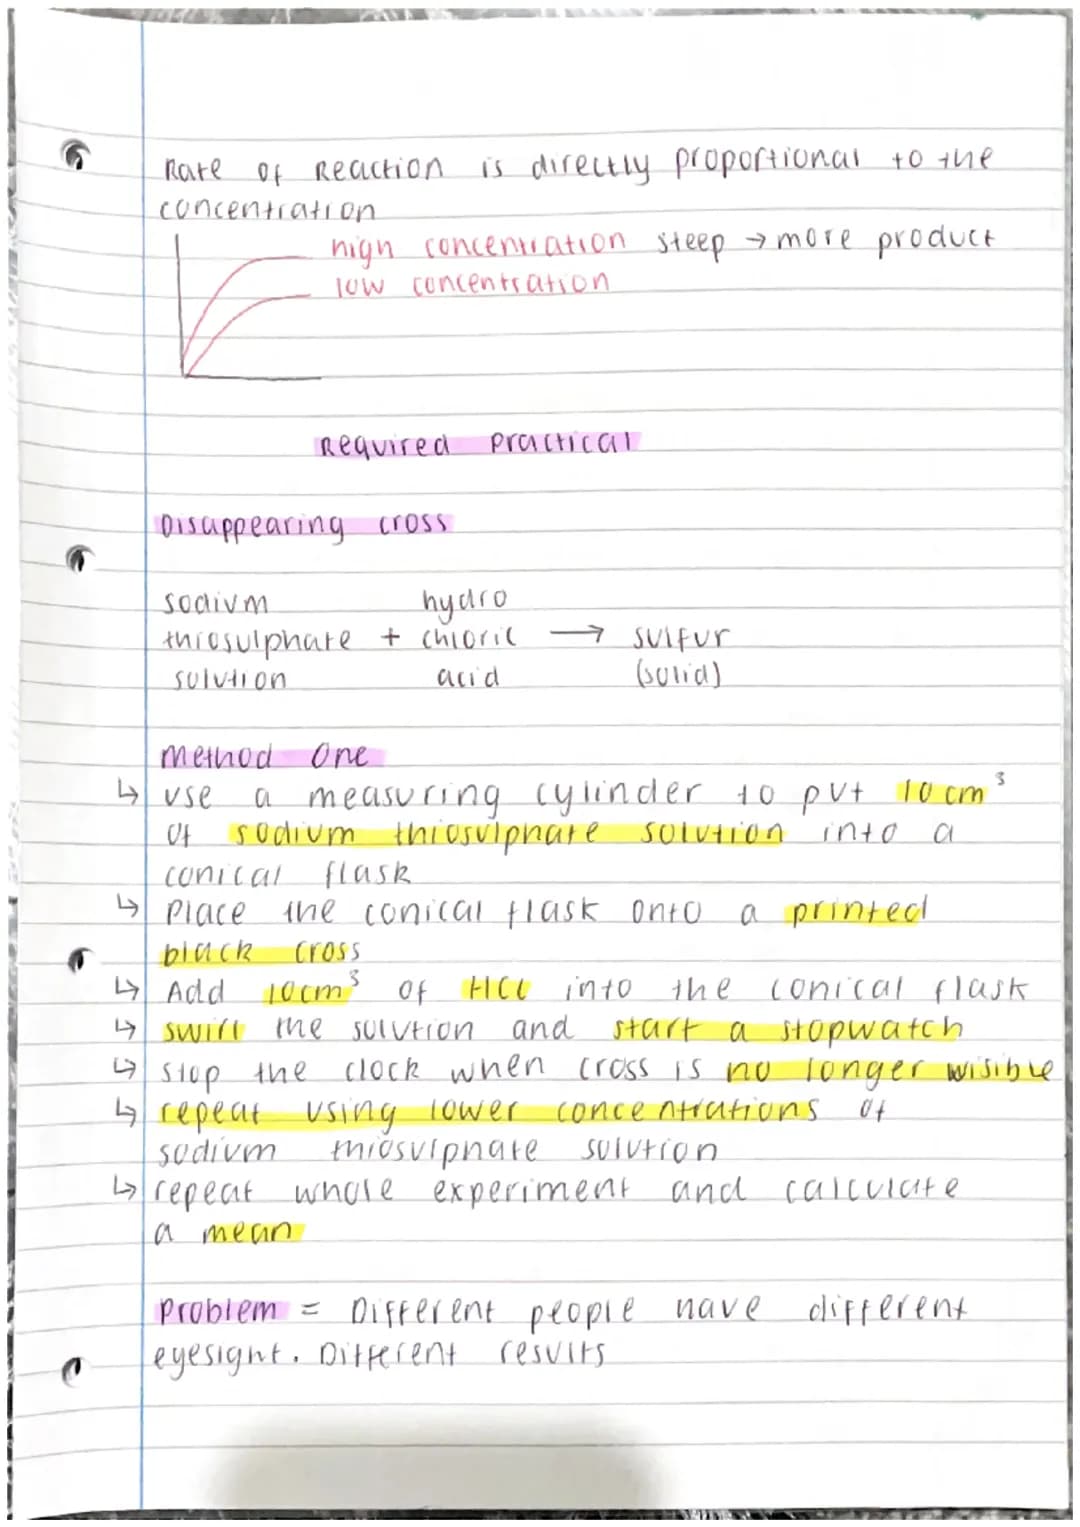 Rate of Reaction is directly proportional to the
concentration
high concentration steep → more product
low concentration
Required Practical
Disappearing cross
sodium hydro
thiosulphate + chloric → sulfur
solution acid (solid)
Method One
↳ use a measuring cylinder to put 10cm³
of sodium thiosulphate solution into a
conical flask
↳ Place the conical flask onto a printed
black cross
↳ Add 10cm³ of HCl into the conical flask
↳ swirl the solution and start a stopwatch
↳ stop the clock when cross is no longer wisible
↳ repeat using lower concentrations of
sodium thiosulphate solution
↳ repeat whole experiment and calculate
a mean
Problem = Different people have different
eyesight. Different results